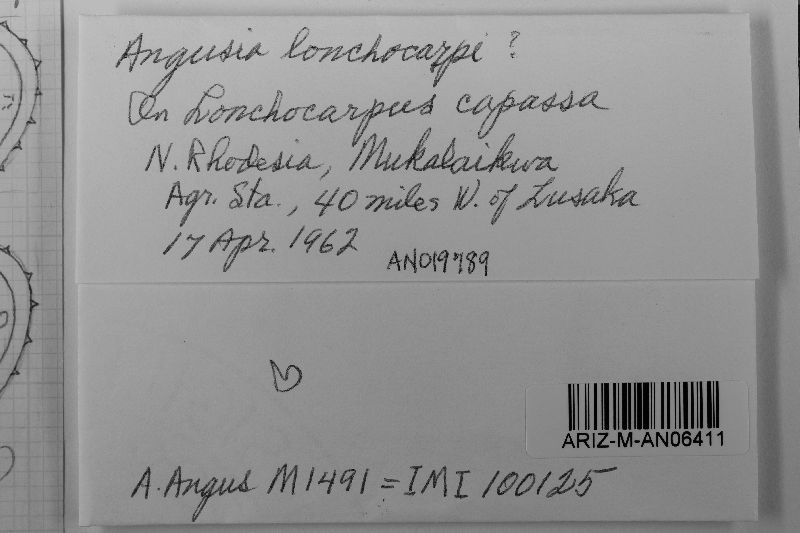 Angusia lonchocarpi ?
On Lonchocarpus capassa
N. Rhodesia, Mukalaikwa
Agr. Sta., 40 miles W. of Lusaka
17 Apr. 1962
AN019789
ARIZ-M-AN06411
A. Angus M1491 = IMI 100125